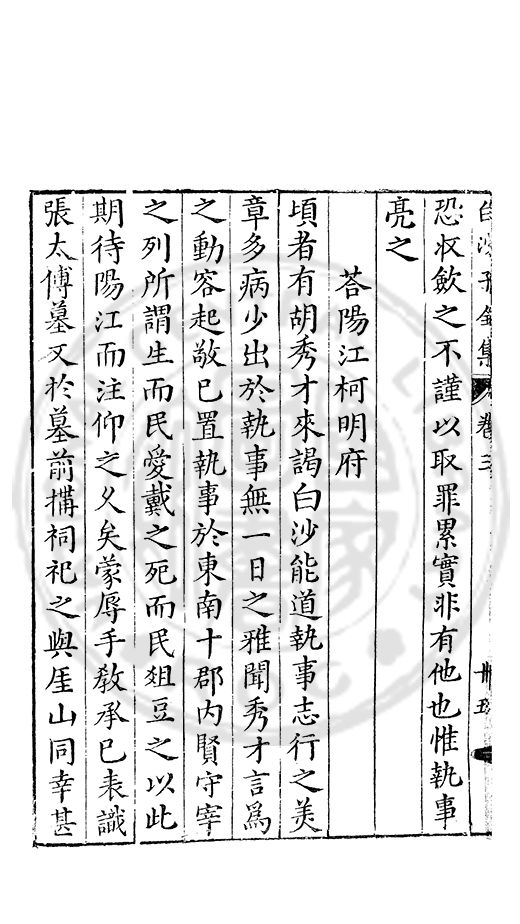 白沙子全集 卷三 卅五
恐收斂之不謹以取罪累實非有他也惟執事
亮之
荅陽江柯明府
頃者有胡秀才來謁白沙能道執事志行之美
章多病少出於執事無一日之雅聞秀才言爲
之動容起敬已置執事於東南十郡內賢守宰
之列所謂生而民愛戴之死而民爼豆之以此
期待陽江而注仰之久矣蒙辱手敎承已表識
張太傅墓又於墓前搆祠祀之與厓山同幸甚